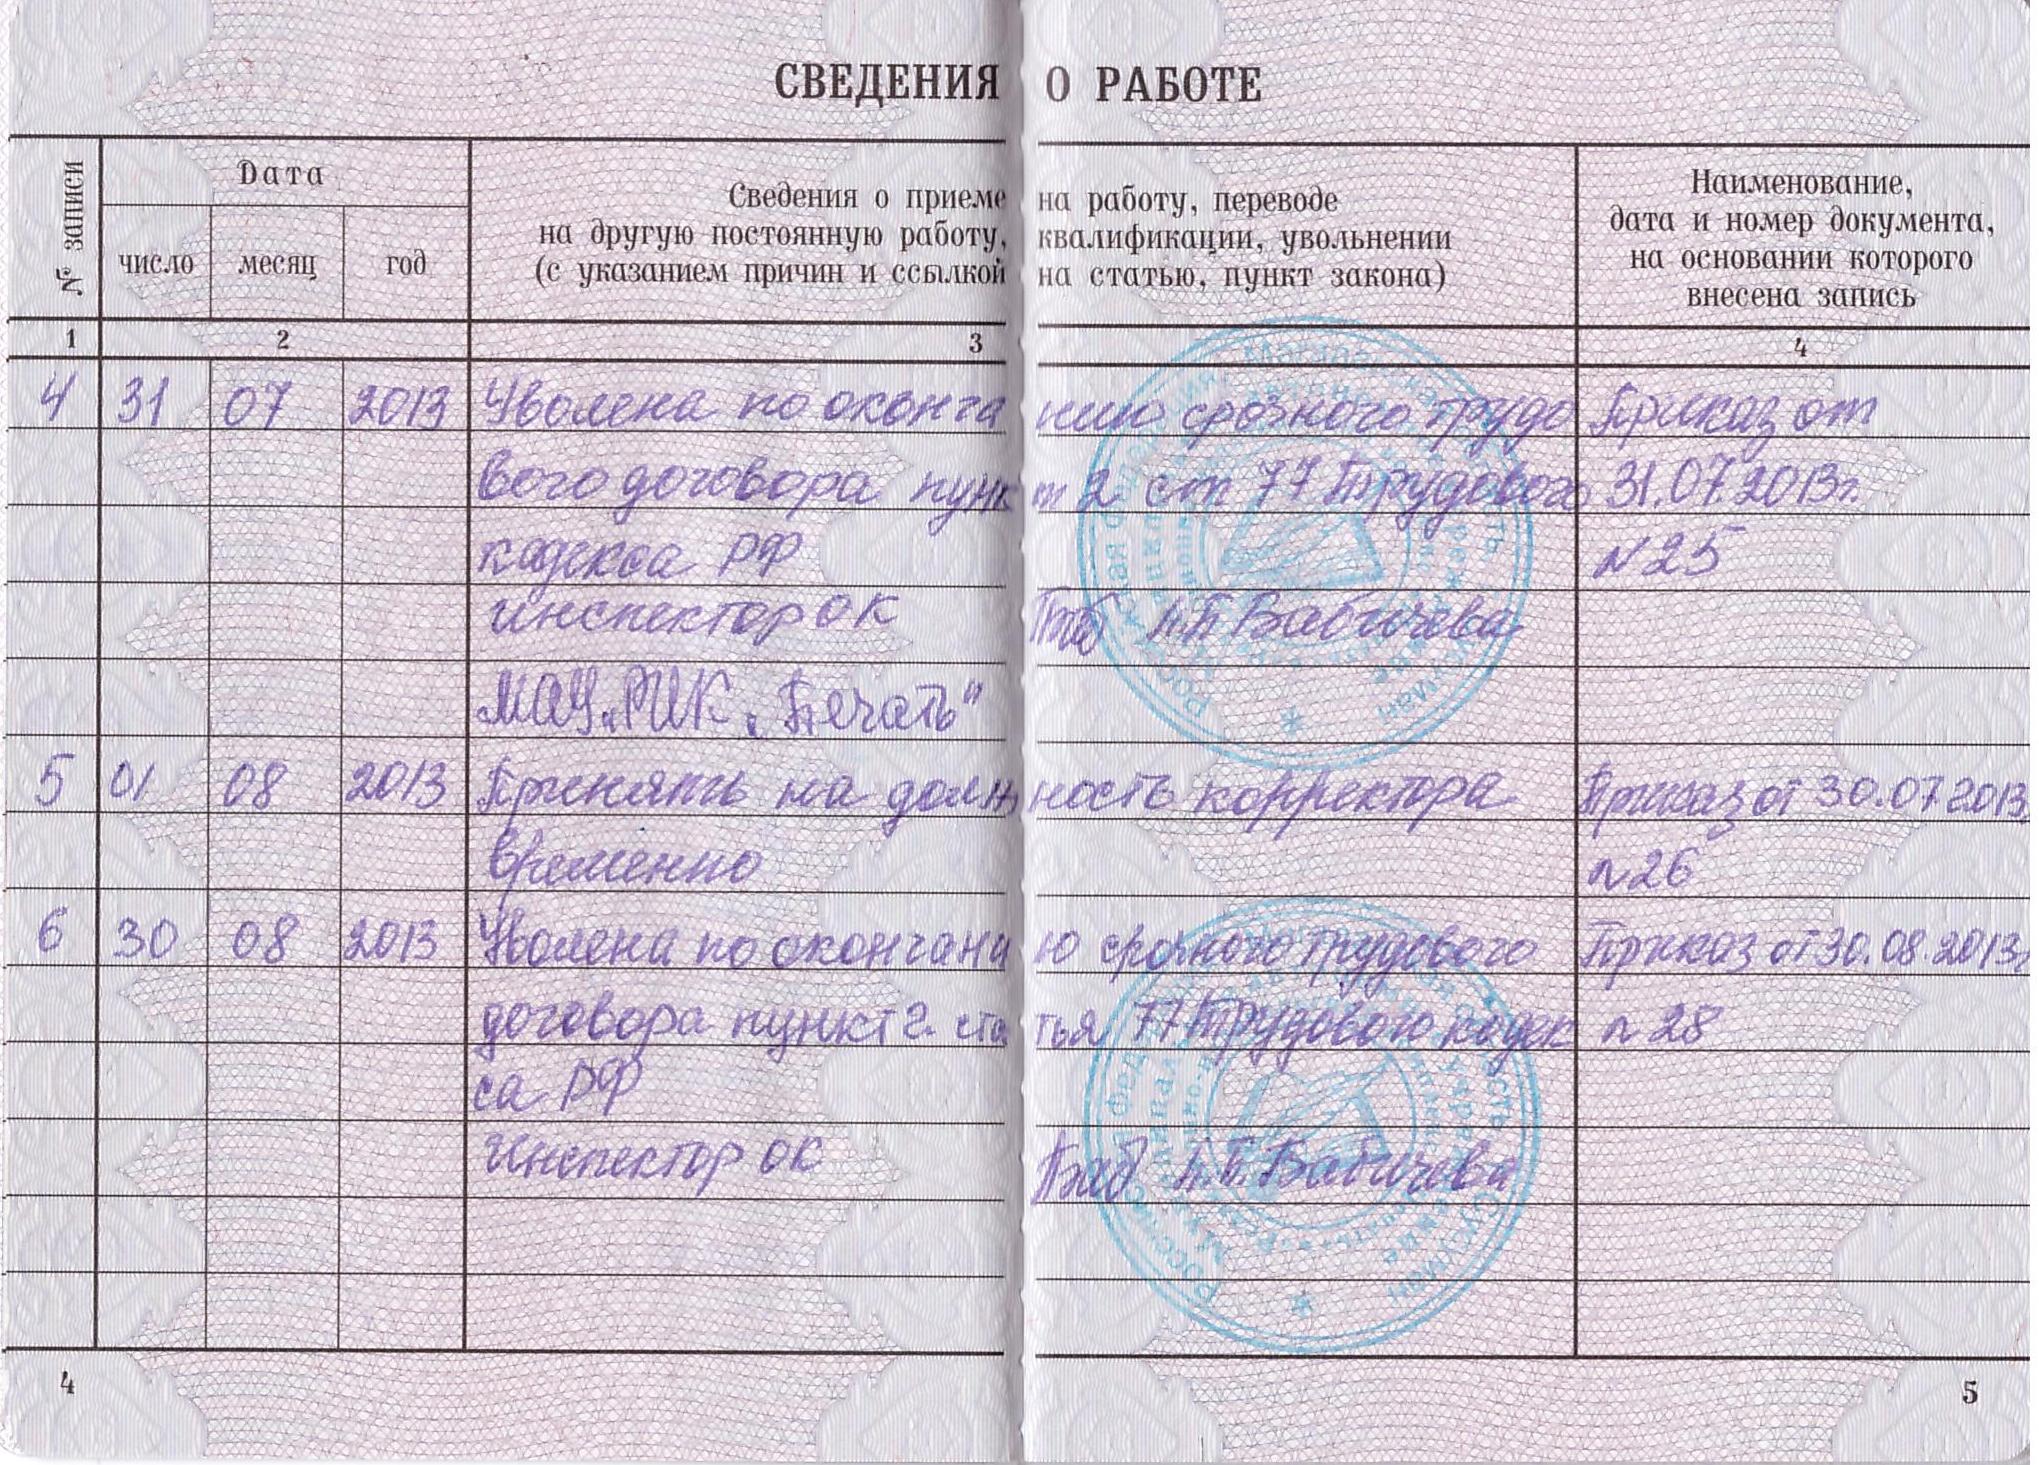 СВЕДЕНИЯ О РАБОТЕ
№ записи
Дата
число месяц год
Сведения о приеме на работу, переводе
на другую постоянную работу, квалификации, увольнении
(с указанием причин и ссылкой на статью, пункт закона)
Наименование,
дата и номер документа,
на основании которого
внесена запись
1 2 3 4
4 31 07 2013 Уволена по оконча нию срочного трудо Приказ от
вого договора пунк т 2 ст 77 Трудового 31.07.2013г.
кодекса РФ N25
инспектор ОК Баб Бабичева
МАУ „РИК „Печать"
5 01 08 2013 Принять на долж ность корректора Приказ от 30.07.2013
временно N26
6 30 08 2013 Уволена по окончани ю срочного трудового Приказ от 30.08.2013г
договора пункт 2. ста тья 77 Трудового кодек N 28
са РФ
Инспектор ОК Баб Бабичева
4 5